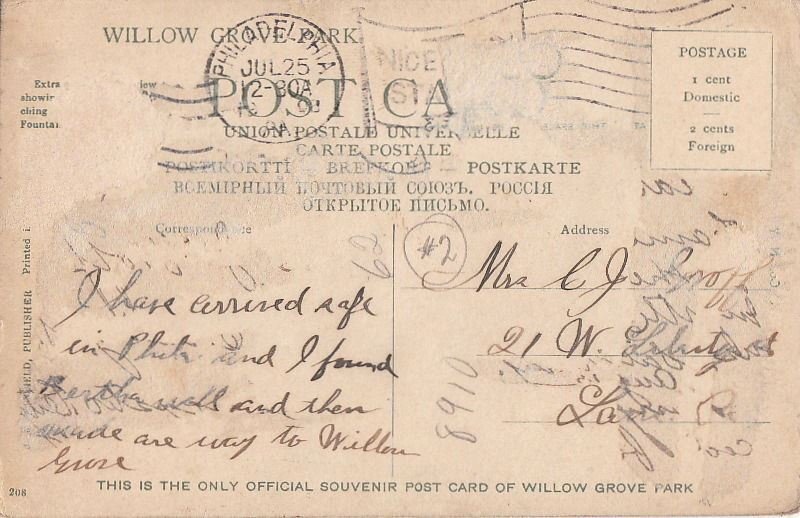 WILLOW GROVE PARK
PHILADELPHIA
JUL 25
12-30A
PA
NICE
STA
POST CA
Extra
showin
ching
Fountai
iew
POSTAGE
1 cent
Domestic
2 cents
Foreign
UNION POSTALE UNIVERSELLE
CARTE POSTALE
POSTIKORTTI — BREFKORT — POSTKARTE
ВСЕМІРНЫЙ ПОЧТОВЫЙ СОЮЗЪ. РОССІЯ
ОТКРЫТОЕ ПИСЬМО.
Correspondence
Address
62
#2
I have arrived safe
in Phila and I found
Bertha well and then
made are way to Willow
Grove
Mrs C J
21 W.
8910
FIELD, PUBLISHER Printed i
208
THIS IS THE ONLY OFFICIAL SOUVENIR POST CARD OF WILLOW GROVE PARK